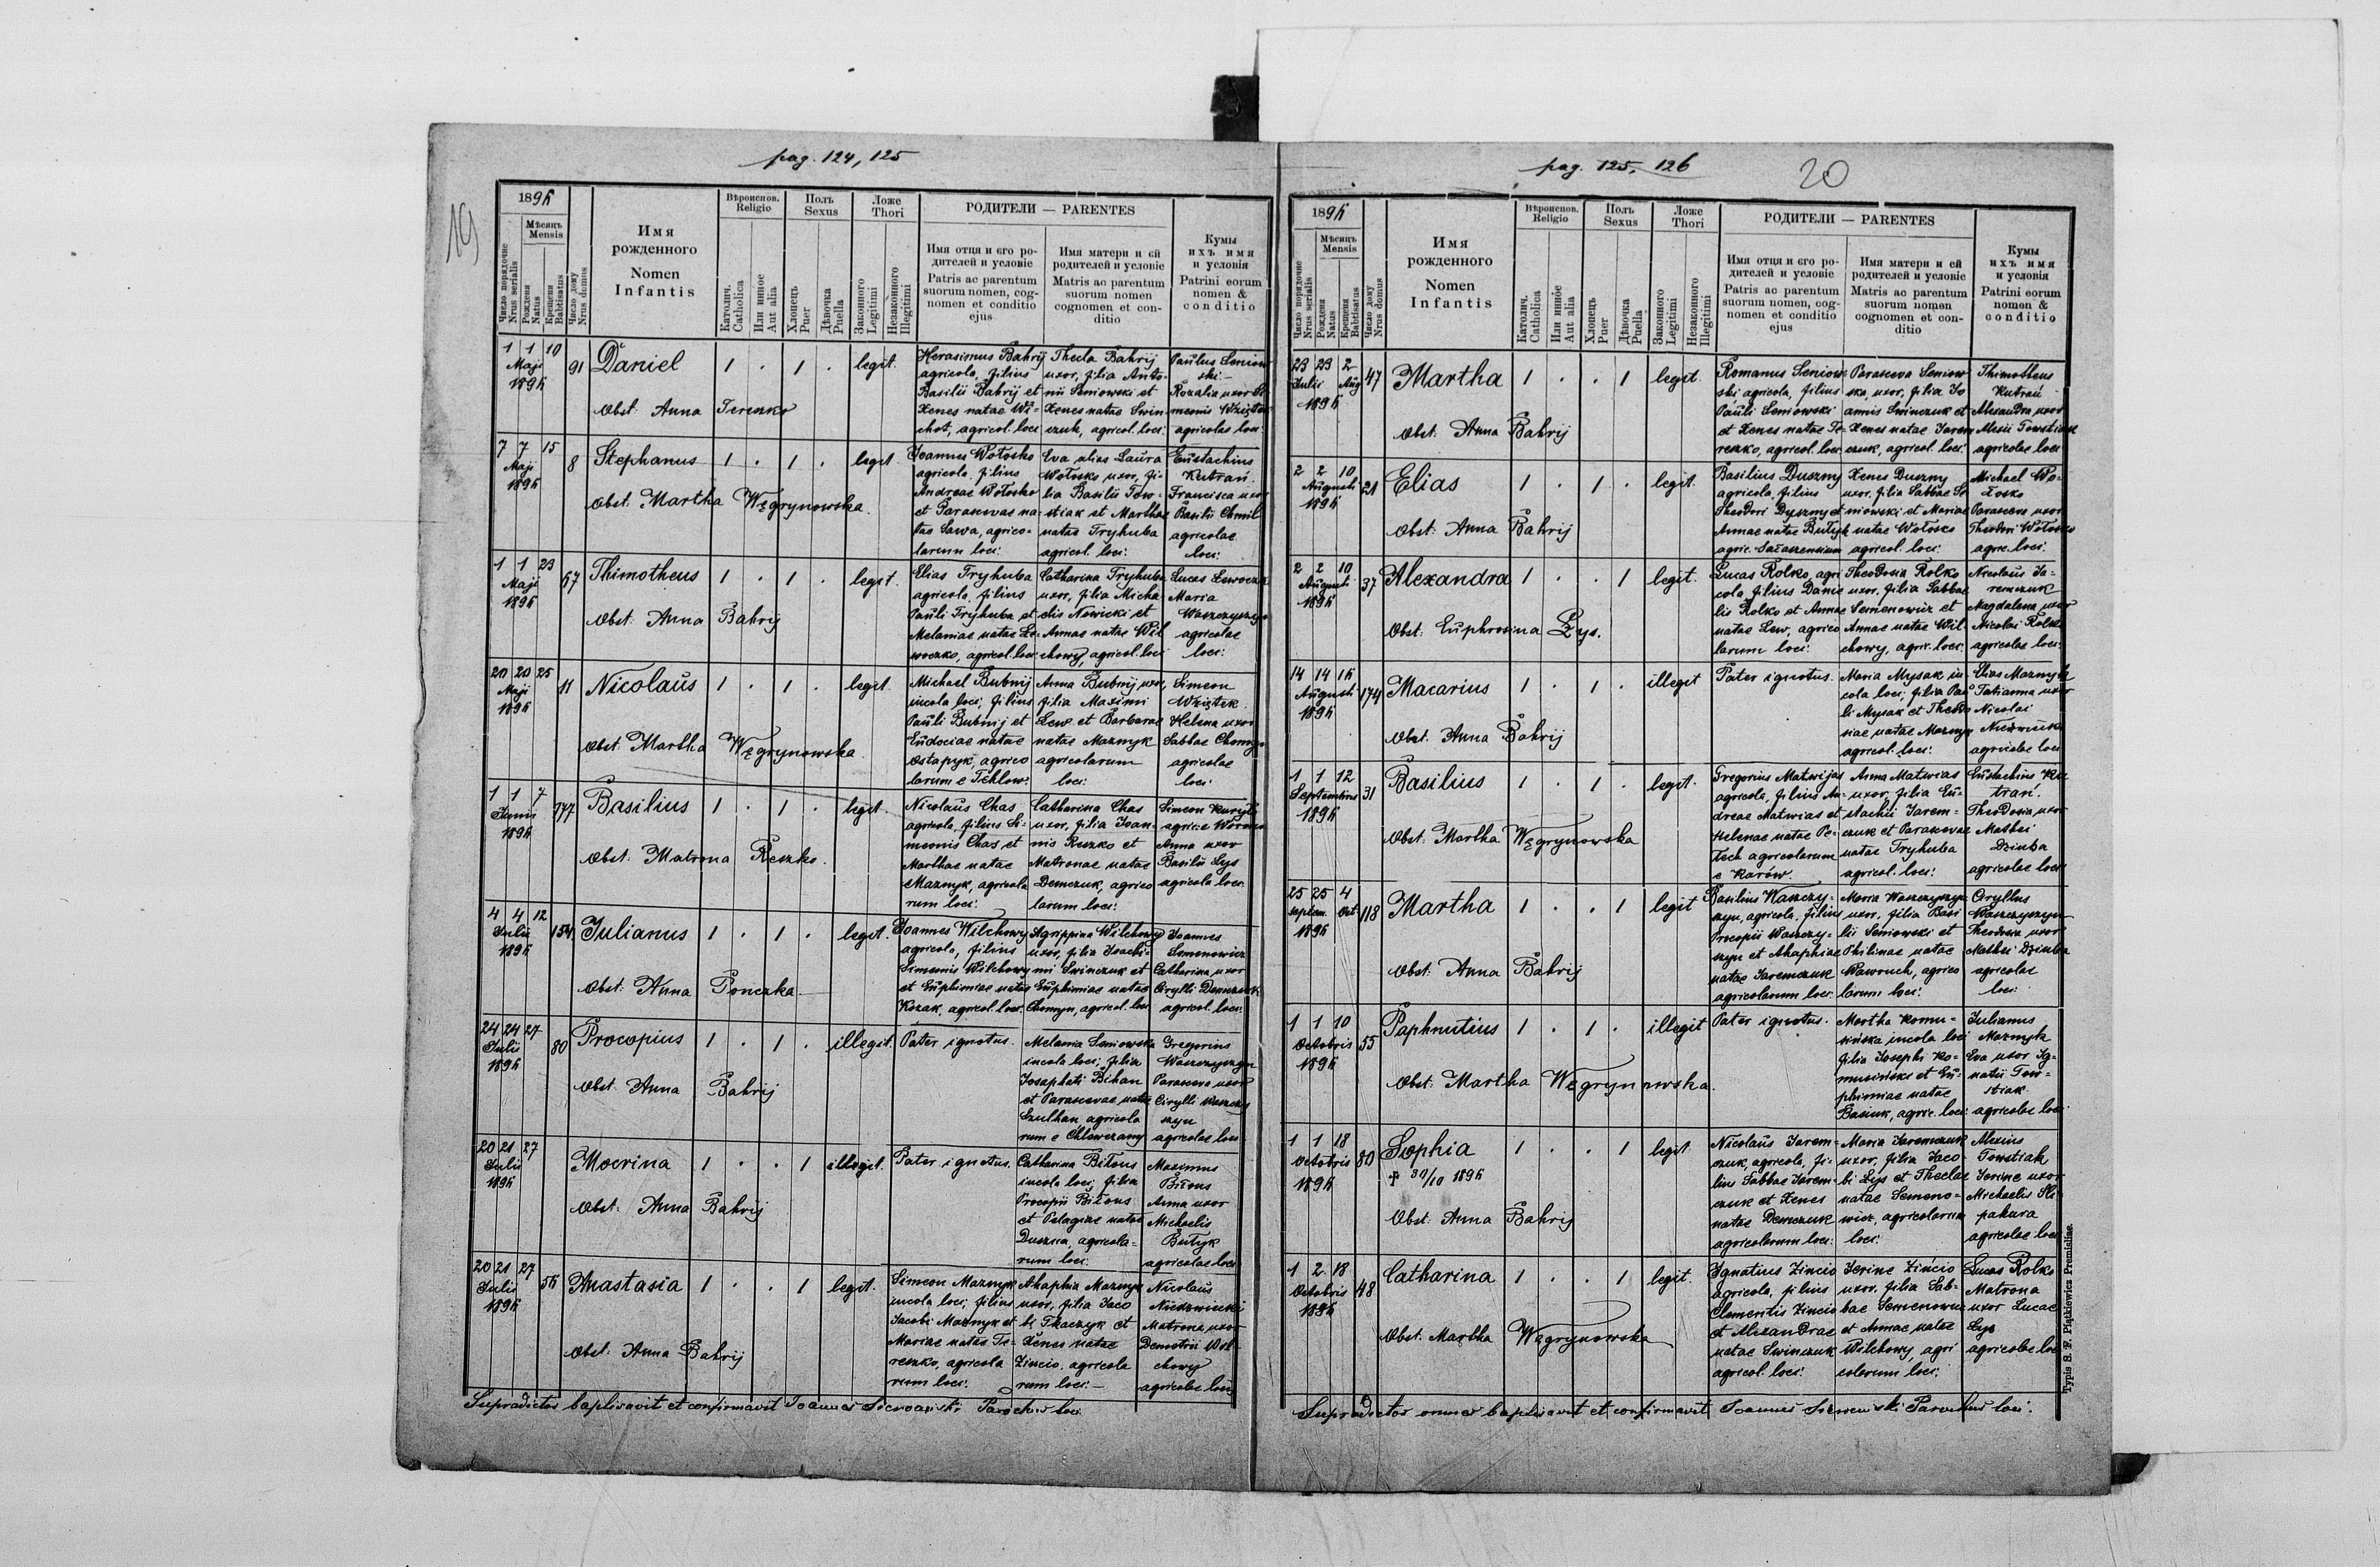 pag. 124, 125
19
1896
Мѣсяцъ
Mensis
Число порядочне
Nrus serialis
Рожденя
Natus
Крещеня
Babtisatus
Число дому
Nrus domus
Имя
рожденного
Nomen
Infantis
Вѣроиспов.
Religio
Католич.
Catholica
Или иное
Aut alia
Полъ
Sexus
Хлопецъ
Puer
Дѣвочка
Puella
Ложе
Thori
Законного
Legitimi
Незаконного
Illegitimi
РОДИТЕЛИ — PARENTES
Имя отця и єго ро-
дителей и условіе
Patris ac parentum
suorum nomen, cog-
nomen et conditio
ejus
Имя матери и єй
родителей и условіе
Matris ac parentum
suorum nomen
cognomen et con-
ditio
Кумы
ихъ имя
и условія
Patrini eorum
nomen &
conditio
1 1 10
Maji
1896
91
Daniel
1 . 1 . legit.
Obst. Anna Tereszko
Herasimus Bahrij
agricola, filius
Basilii Bahrij et
Xenes natae Wi-
chot, agricol. loci
Thecla Bahrij
uxor, filia Anto-
nii Seniowski et
Xenes natae Swin-
czuk, agricol. loci.
Paulus Seniow-
ski
Rozalia uxor Si-
meonis Wziątek
agricolae loci.
7 7 15
Maji
1896
8
Stephanus
1 . 1 . legit.
Obst. Martha Węgrynowska.
Joannes Wołosko
agricola, filius
Andreae Wołosko
et Parascevae na-
tae Sawa, agrico-
larum loci.
Eva alias Laura
Wołosko uxor, fi-
lia Basilii Tow-
stiak et Marthae
natae Tryhuba
agricol. loci.
Eustachius
Kutran.
Francisca uxor
Basilii Chmil
agricolae
loci.
1 1 23
Maji
1896
67
Thimotheus
1 . 1 . legit.
Obst. Anna Bahrij
Elias Tryhuba
agricola, filius
Pauli Tryhuba et
Melaniae natae Le-
woczko, agricol. loci.
Catharina Tryhuba
uxor, filia Micha-
elis Nowicki et
Annae natae Wil
chowy, agricol. loci
Lucas Lewoczko
Maria
Waszczyszyn
agricolae
loci.
20 20 25
Maji
1896
11
Nicolaus
1 . 1 . legit
Obst. Martha Węgrynowska.
Michael Bubnij
incola loci, filius
Pauli Bubnij et
Eudociae natae
Ostapyk, agrico
larum e Tehlow.
Anna Bubnij uxor,
filia Maximi
Lew et Barbarae
natae Maznyk
agricolarum
loci.
Simeon
Wziątek.
Helena uxor
Sabbae Chomyn
agricolae
loci.
1 1 7
Junii
1896
177
Basilius
1 . 1 . legit.
Obst. Matrona Reszko.
Nicolaus Chas
agricola, filius Si-
meonis Chas et
Marthae natae
Maznyk, agricola
rum loci.
Catharina Chas
uxor, filia Joan-
nis Reszko et
Matronae natae
Demczuk, agrico
larum loci.
Anna uxor
Basilii Lys
agricola loci.
4 4 12
Julii
1896
154
Julianus
1 . 1 . legit.
Obst. Anna Ponczka
Joannes Wilchowy
agricola, filius
Simeonis Wilchowy
et Euphimiae natae
Kozak, agricol. loci.
Agrippina Wilchowy
uxor, filia Joachi-
mi Swinczuk et
Euphimiae natae
Chomyn, agricol. loci
Joannes
Semenowicz
Catharina, uxor
Cirylli Demczuk
agricol. loci.
24 24 27
Julii
1896
80
Procopius
1 . 1 . illegit.
Obst. Anna Bahrij
Pater ignotus.
Melania Seniowska
incola loci, filia
Josaphati Bihan
et Parascevae natae
Szulhan agricola
rum e Chlewczany
Gregorius
Waszczyszyn
Parasceva uxor
Cirylli Waszczy
szyn
agricolae loci
20 21 27
Julii
1896
Mocrina
1 . . 1 illegit.
Obst. Anna Bahrij
Pater ignotus.
Catharina Biłous
incola loci, filia
Procopii Biłous
et Pelagiae natae
Duszna, agricola-
rum loci.
Maximus
Biłous
Anna uxor
Michaelis
Butyk
agricolae loci
20 21 27
Julii
1896
56
Anastasia
1 . . 1 legit.
Obst. Anna Bahrij
Simeon Maznyk
incola loci, filius
Jacobi Maznyk et
Mariae natae Te-
reszko, agricola
rum loci.
Ahaphia Maznyk
uxor, filia Jaco
bi Tkaczyk et
Xenes natae
Zincio, agricola
rum loci.
Nicolaus
Matrona uxor
Demetrii Wil-
chowy
agricolae loci
Supradictos baptisavit et confirmavit Joannes Sieniewski Parochus loci
pag. 125, 126
20
1896
Мѣсяцъ
Mensis
Число порядочне
Nrus serialis
Рожденя
Natus
Крещеня
Babtisatus
Число дому
Nrus domus
Имя
рожденного
Nomen
Infantis
Вѣроиспов.
Religio
Католич.
Catholica
Или иное
Aut alia
Полъ
Sexus
Хлопецъ
Puer
Дѣвочка
Puella
Ложе
Thori
Законного
Legitimi
Незаконного
Illegitimi
РОДИТЕЛИ — PARENTES
Имя отця и єго ро-
дителей и условіе
Patris ac parentum
suorum nomen, cog-
nomen et conditio
ejus
Имя матери и єй
родителей и условіе
Matris ac parentum
suorum nomen
cognomen et con-
ditio
Кумы
ихъ имя
и условія
Patrini eorum
nomen &
conditio
23 23 2
Julii Aug
1896
47
Martha
1 . . 1 legit.
Obst. Anna Bahrij
Romanus Seniow-
ski, agricola, filius
Pauli Seniowski
et Xenes natae Te-
reszko, agricol. loci.
Parasceva Seniow-
ska, uxor, filia Jo
annis Swinczuk et
Xenes natae Jarem
czuk, agricol. loci.
Thimotheus
Kutran
Alexandra uxor
Alexii Towstiak
agricolae loci
2 2 10
Augusti
1896
21
Elias
1 . 1 . legit.
Obst. Anna Bahrij
Basilius Duszny
agricola, filius
Theodori Duszny et
Annae natae Butyk
Xenes Duszny
uxor, filia Sabbae Se
niowski et Mariae
natae Wołosko
agricol. loci.
Michael Wo-
łosko
Parasceva uxor
Theodori Wołosko
agric. loci.
2 2 10
Augusti
1896
37
Alexandra
1 . . 1 legit.
Obst. Euphrosina Lys.
Lucas Rolko, agri
cola, filius Danie
lis Rolko et Annae
natae Lew, agrico
larum loci.
Theodosia Rolko
uxor, filia Sabbae
Semenowicz et
Annae natae Wil-
chowy, agric. loci.
Nicolaus Ja-
remczuk
Magdalena uxor
Nicolai Rolko
agricolae loci.
14 14 16
Augusti
1896
174
Macarius
1 . 1 . illegit
Obst. Anna Bahrij
Pater ignotus.
Maria Mysak in
cola loci, filia Pau
li Mysak et Theodo
siae natae Maznyk
agricol. loci.
Elias Maznyk
Tatianna uxor
Nicolai
agricolae loci
1 1 12
Septembris
1896
31
Basilius
1 . 1 . legit.
Obst. Martha Węgrynowska
Gregorius Matwijas
agricola, filius An-
dreae Matwias et
Helenae natae Pe-
tech agricolarum
e Karów.
Anna Matwias
uxor, filia Eu-
stachii Jarem-
czuk et Parascevae
natae Tryhuba
agricol. loci.
Eustachius Ku
tran.
Theodosia uxor
Mathei
Dziuba
agricolae loci
25 25 4
Septem. Oct.
1896
118
Martha
1 . . 1 legit
Obst. Anna Bahrij
Basilius Waszczy-
szyn, agricola, filius
Procopii Waszczy-
szyn et Ahaphiae
natae Jaremczuk
agricolarum loci.
Maria Waszczyszyn
uxor, filia Basi
lii Seniowski et
Philinae natae
Waworuch, agrico
larum loci.
Cyryllus
Waszczyszyn
Theodosia uxor
Mathei Dziuba
agricolae
loci.
1 1 10
Octobris
1896
55
Paphnutius
1 . 1 . illegit
Obst. Martha Węgrynowska.
Pater ignotus.
Martha Komu-
sińska incola loci
filia Josephi Ko-
musiński et Eu-
phimiae natae
Basiuk, agric. loci.
Julianus
Maznyk
Eva uxor Ig-
natii Tow-
stiak
agricolae loci
1 1 18
Octobris
1896
80
Sophia
✝ 30/10 1896
1 . . 1 legit
Obst. Anna Bahrij
Nicolaus Jarem-
czuk, agricola, fi-
lius Sabbae Jarem-
czuk et Xenes
natae Demczuk
agricolarum loci.
Maria Jaremczuk
uxor, filia Jaco-
bi Lys et Theclae
natae Semeno-
wicz, agricolarum
loci.
Alexius
Towstiak
Irene uxor
Michaelis Sli-
pakura
agricolae loci
1 2 18
Octobris
1896
48
Catharina
1 . . 1 legit.
Obst. Martha Węgrynowska
Ignatius Zincio
agricola, filius
Clementis Zincio
et Alexandrae
natae Swinczuk
agricol. loci.
Irine Zincio
uxor, filia Sab-
bae Semenowicz
et Annae natae
Wilchowy, agri
colarum loci.
Lucas Rolko
Matrona
uxor Lucae
Lys
agricolae loci
Supradictos omnes baptisavit et confirmavit Joannes Sieniewski Parochus loci.
Typis S. F. Piątkiewicz Premisliae.